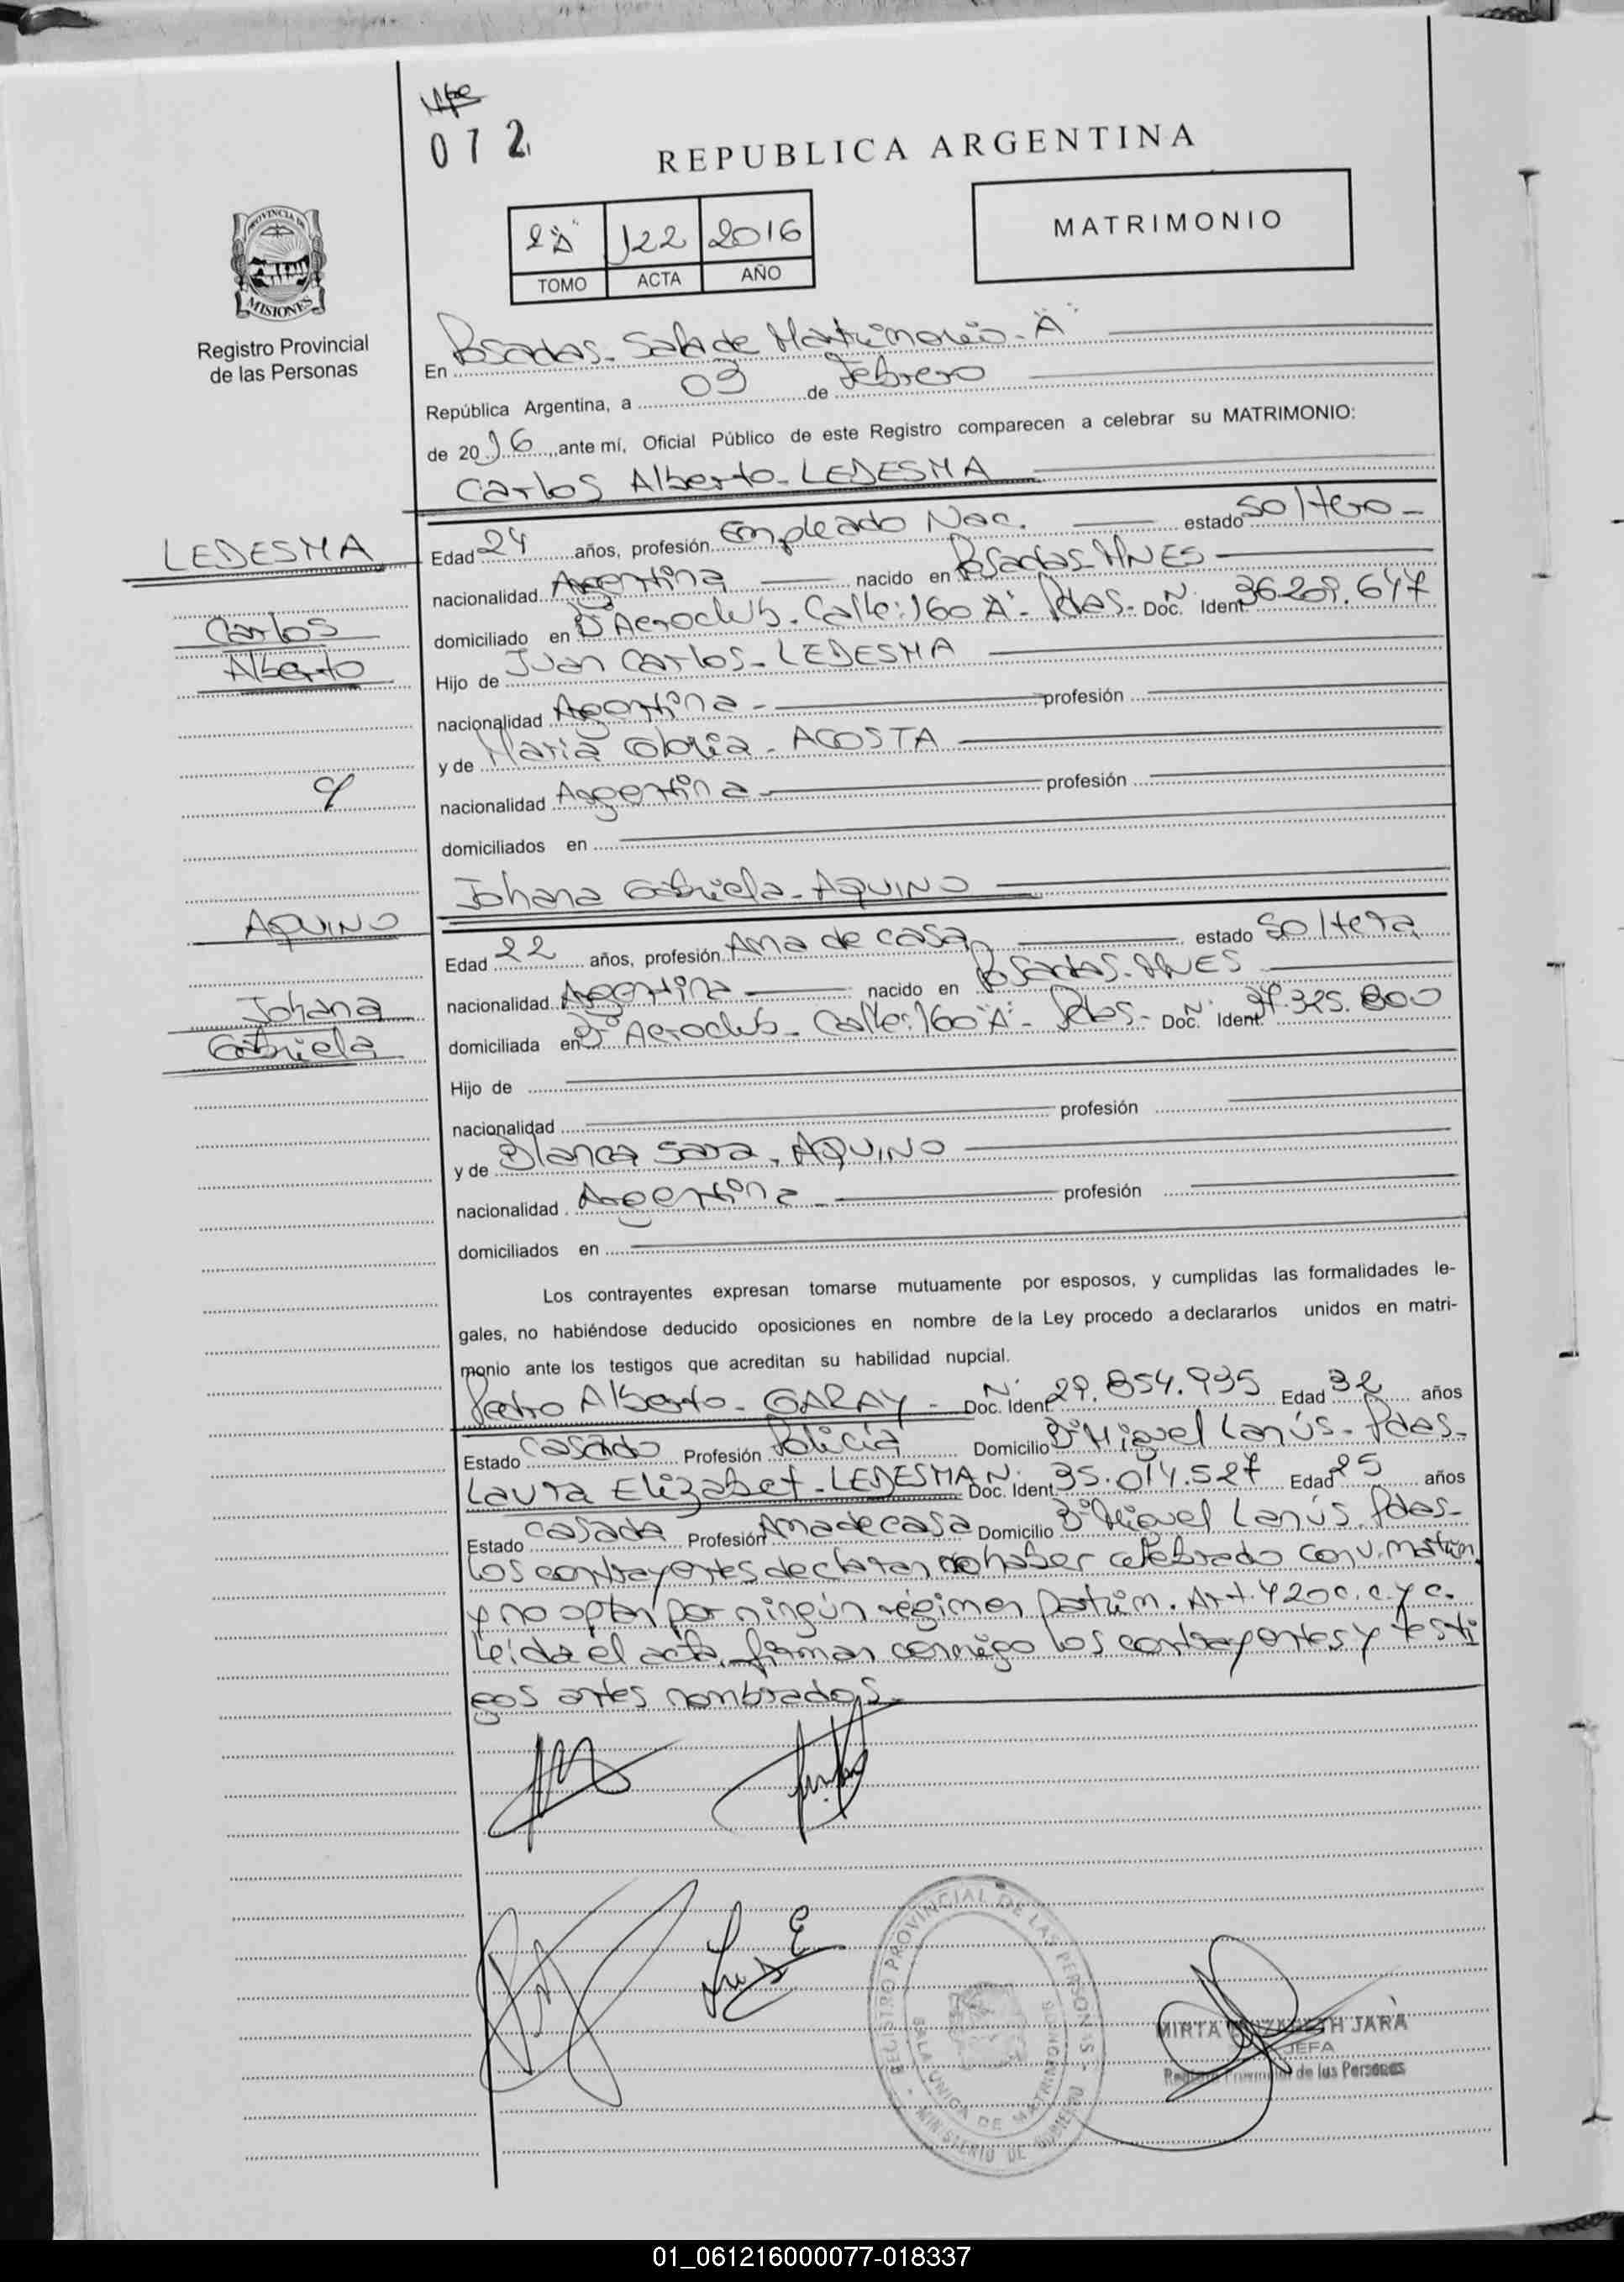 072
REPUBLICA ARGENTINA
PROVINCIA DE
MISIONES
Registro Provincial
de las Personas
2º "A" 122 2016
TOMO ACTA AÑO
MATRIMONIO
En Posadas - Sala de Matrimonio - "A"
República Argentina, a 09 de Febrero
de 2016, ante mí, Oficial Público de este Registro comparecen a celebrar su MATRIMONIO:
Carlos Alberto - LEDESMA
LEDESMA
Carlos
Alberto
Edad 24 años, profesión Empleado Nac. estado Soltero -
nacionalidad Argentina nacido en Posadas - MNES
domiciliado en Bº Aeroclub - Calle: 160 "A" - Pdas - Doc. Nº Ident 36.209.647
Hijo de Juan Carlos - LEDESMA
nacionalidad Argentina - profesión
y de María Gloria - ACOSTA
nacionalidad Argentina - profesión
domiciliados en
Johana Gabriela - AQUINO
AQUINO
Johana
Gabriela
Edad 22 años, profesión Ama de casa estado Soltera
nacionalidad Argentina nacido en Posadas - MNES
domiciliada en Bº Aeroclub - Calle: 160 "A" - Pdas - Doc. Nº Ident 37.325.800
Hijo de
nacionalidad profesión
y de Blanca Sara - AQUINO
nacionalidad Argentina - profesión
domiciliados en
Los contrayentes expresan tomarse mutuamente por esposos, y cumplidas las formalidades le-
gales, no habiéndose deducido oposiciones en nombre de la Ley procedo a declararlos unidos en matri-
monio ante los testigos que acreditan su habilidad nupcial.
Pedro Alberto - GARAY - Doc. Nº Ident 29.854.935 Edad 32 años
Estado Casado Profesión Policía Domicilio Bº Miguel Lanús - Pdas -
Laura Elizabet - LEDESMA Doc. Nº Ident. 35.014.527 Edad 25 años
Estado Casada Profesión Ama de casa Domicilio Bº Miguel Lanús. Pdas -
Los contrayentes declaran no haber celebrado conv. matrim.
y no optan por ningún régimen patrim. Art. 420 c.c.y c.
Leída el acta, firman conmigo los contrayentes y testi
gos antes nombrados.
REGISTRO PROVINCIAL DE LAS PERSONAS - MINISTERIO DE GOBIERNO
SALA UNICA DE MATRIMONIOS
MIRTA JARA
JEFA
Registro Provincial de las Personas
01_061216000077-018337